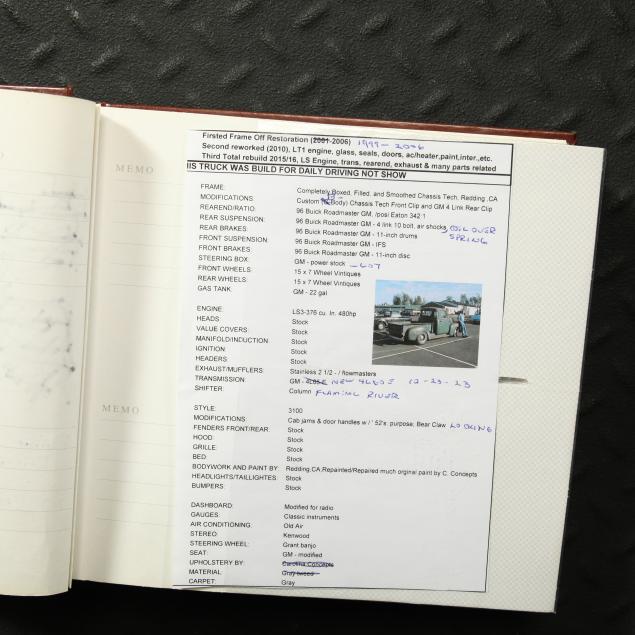 MEMO
MEMO
Firsted Frame Off Restoration (2001-2006) 1999-2006
Second reworked (2010), LT1 engine, glass, seals, doors, ac/heater,paint,inter.,etc.
Third Total rebuild 2015/16, LS Engine, trans, rearend, exhaust & many parts related
IS TRUCK WAS BUILD FOR DAILY DRIVING NOT SHOW
FRAME: Completely Boxed, Filled, and Smoothed Chassis Tech, Redding ,CA
MODIFICATIONS: Custom Body) Chassis Tech Front Clip and GM 4 Link Rear Clip
REAREND/RATIO: 96 Buick Roadmaster GM, /posi Eaton 342:1
REAR SUSPENSION: 96 Buick Roadmaster GM - 4 link 10 bolt, air shocks, COIL OVER SPRING
REAR BRAKES: 96 Buick Roadmaster GM - 11-inch drums
FRONT SUSPENSION: 96 Buick Roadmaster GM - IFS
FRONT BRAKES: 96 Buick Roadmaster GM - 11-inch disc
STEERING BOX: GM - power stock - 607
FRONT WHEELS: 15 x 7 Wheel Vintiques
REAR WHEELS: 15 x 7 Wheel Vintiques
GAS TANK: GM - 22 gal
ENGINE: LS3-376 cu. In. 480hp
HEADS: Stock
VALUE COVERS: Stock
MANIFOLD/INDUCTION: Stock
IGNITION: Stock
HEADERS: Stock
EXHAUST/MUFFLERS: Stainless 2 1/2 - / flowmasters
TRANSMISSION: GM - 4L65-E NEW 4L80E 12-23-23
SHIFTER: Column FLAMING RIVER
STYLE: 3100
MODIFICATIONS: Cab jams & door handles w / ' 52's: purpose; Bear Claw LOCKING
FENDERS FRONT/REAR: Stock
HOOD: Stock
GRILLE: Stock
BED: Stock
BODYWORK AND PAINT BY: Redding,CA,Repainted/Repaired much orginal paint by C. Concepts
HEADLIGHTS/TAILLIGHTES: Stock
BUMPERS: Stock
DASHBOARD: Modified for radio
GAUGES: Classic instruments
AIR CONDITIONING: Old Air
STEREO: Kenwood
STEERING WHEEL: Grant banjo
SEAT: GM - modified
UPHOLSTERY BY: Carolina Concepts
MATERIAL: Gray tweed
CARPET: Gray